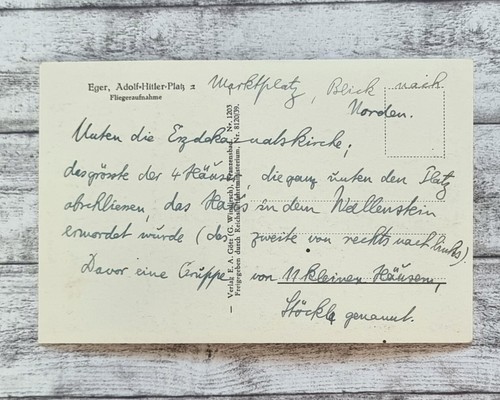 Eger, Adolf-Hitler-Platz = Marktplatz, Blick nach
Fliegeraufnahme
Norden.
Unten die Erzdekanatskirche;
das grösste der 4 Häuser, die ganz unten den Platz
abschliesen, das Haus in dem Wallenstein
ermordet wurde (das zweite von rechts nach links).
Davor eine Gruppe von 11 kleinen Häusern,
Stöckl genannt.
— Verlag E. A. Götz (G. Wiesnersch), Franzensbad. — Nr. 1203
Freigegeben durch Reichsluftfahrtministerium. Nr. 8120/39.